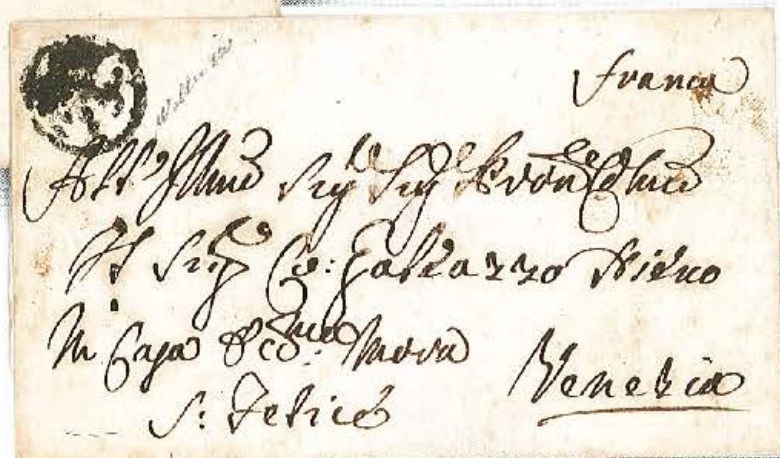 franca
All' Illmo Sig Sig Pron Colmo
Il Sig Co: Galeazzo Nievo
In Casa Mora
S: Felice
Venezia